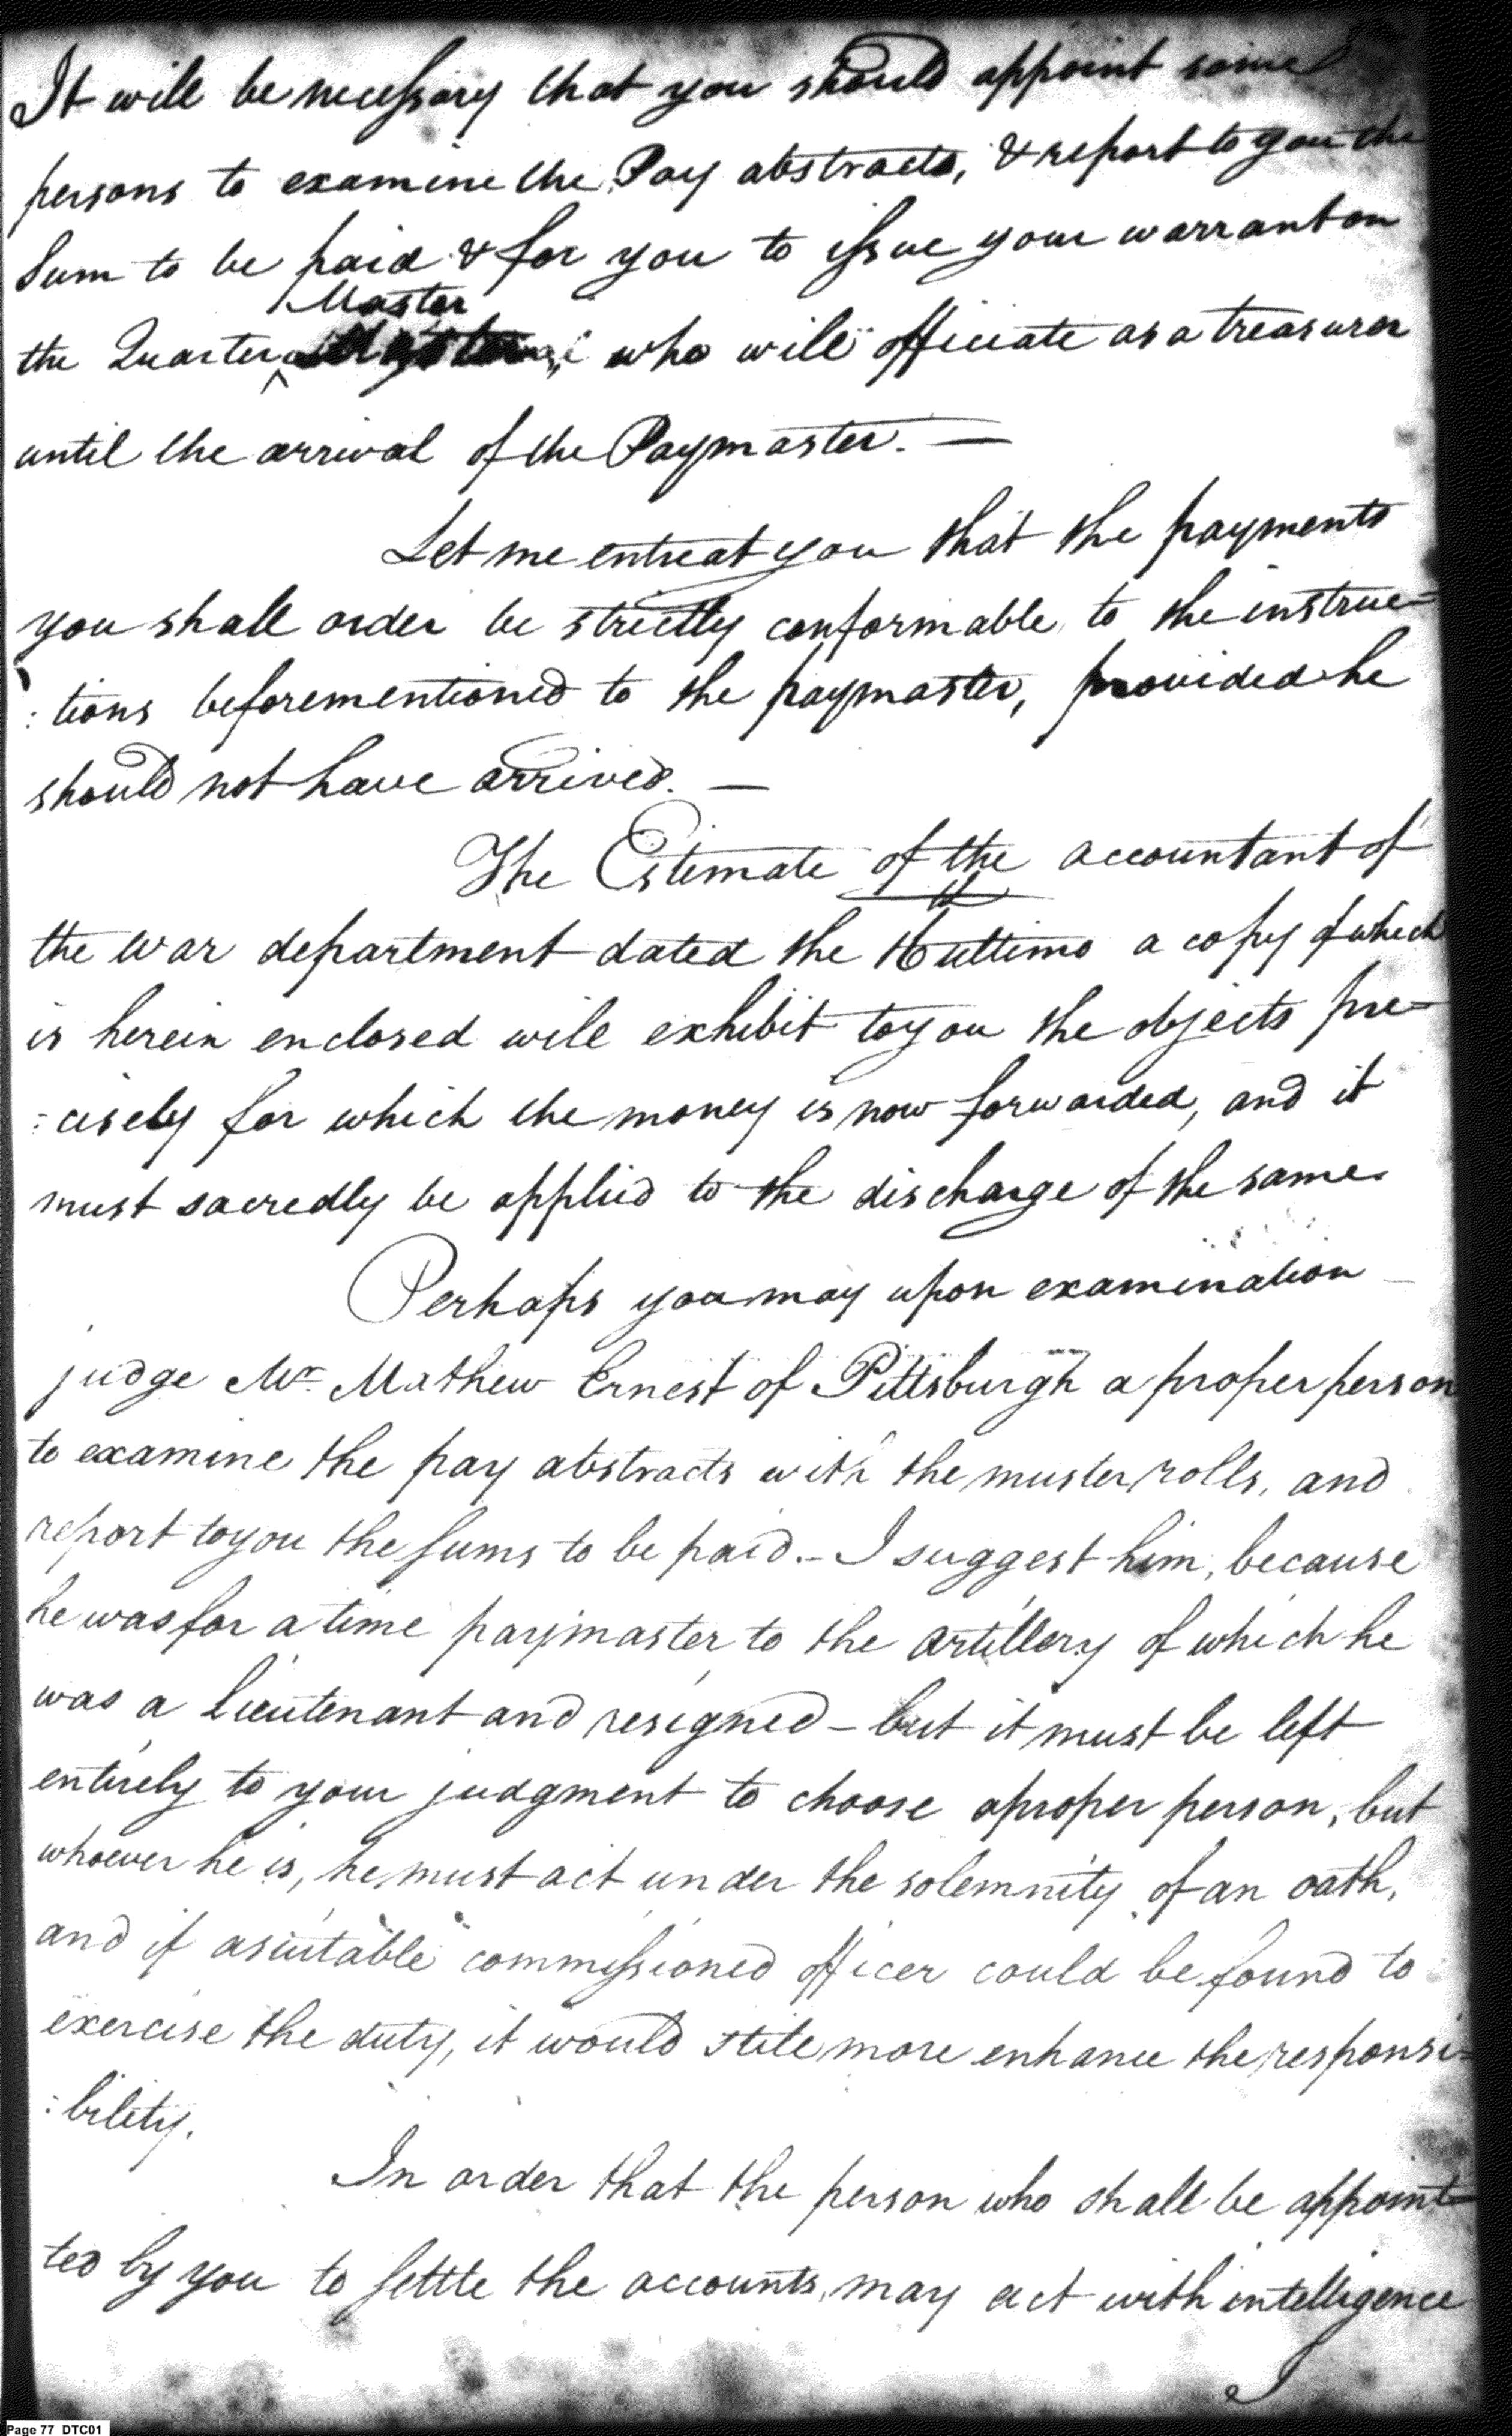 It will be necessary that you should appoint some
persons to examine the Pay abstracts, & report to you the
Sum to be paid & for you to issue your warrant on
Master
the Quarter who will officiate as a treasurer
until the arrival of the Paymaster. —
Let me entreat you that the payments
you shall order be strictly conformable to the instruc=
:tions beforementioned to the paymaster, provided he
should not have arrived. —
The Estimate of the accountant of
the war department dated the ultimo a copy of which
is herein enclosed will exhibit to you the objects pre=
:cisely for which the money is now forwarded, and it
must sacredly be applied to the discharge of the same.
Perhaps you may upon examination
judge Mr. Mathew Ernest of Pittsburgh a proper person
to examine the pay abstracts with the muster rolls, and
report to you the sums to be paid. – I suggest him, because
he was for a time paymaster to the artillery of which he
was a lieutenant and resigned – but it must be left
entirely to your judgment to choose a proper person, but
whoever he is, he must act under the solemnity of an oath,
and if a suitable commissioned officer could be found to
exercise the duty, it would still more enhance the responsi=
:bility.
In order that the person who shall be appoint
ted by you to settle the accounts, may act with intelligence
Page 77 DTC01